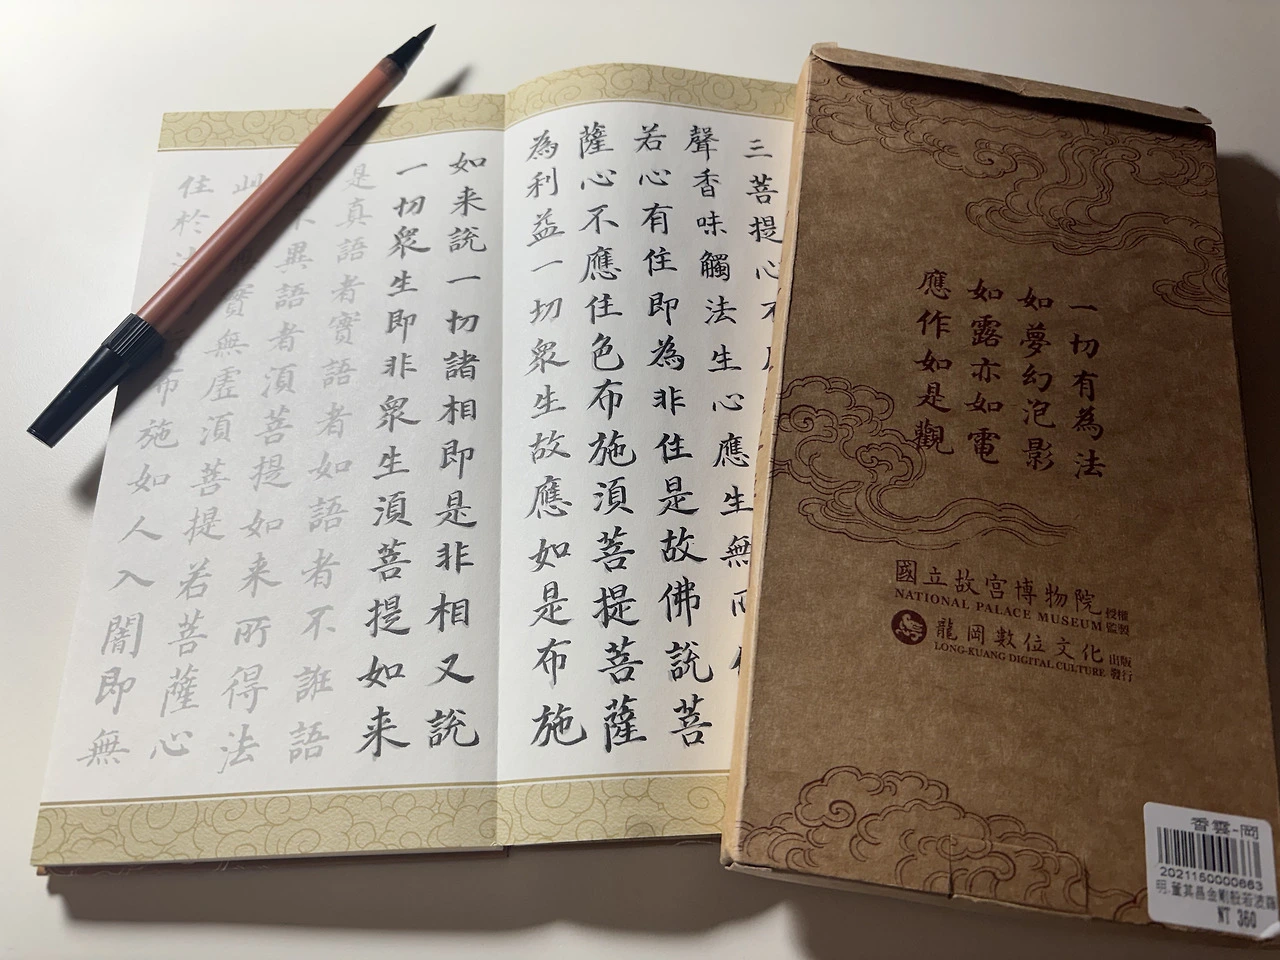 三菩提心不
聲香味觸法生心應生無所
若心有住即為非住是故佛說菩
薩心不應住色布施湏菩提菩薩
為利益一切衆生故應如是布施
如来說一切諸相即是非相又說
一切衆生即非衆生湏菩提如来
是真語者實語者如語者不誑語
不異語者湏菩提如来所得法
此實無虛湏菩提若菩薩心
住於法布施如人入闇即無
一切有為法
如夢幻泡影
如露亦如電
應作如是觀
國立故宮博物院 授權監製
NATIONAL PALACE MUSEUM
龍岡數位文化 出版發行
LONG-KUANG DIGITAL CULTURE
香雲-岡
2021150000663
明.董其昌金剛般若波羅
NT 360